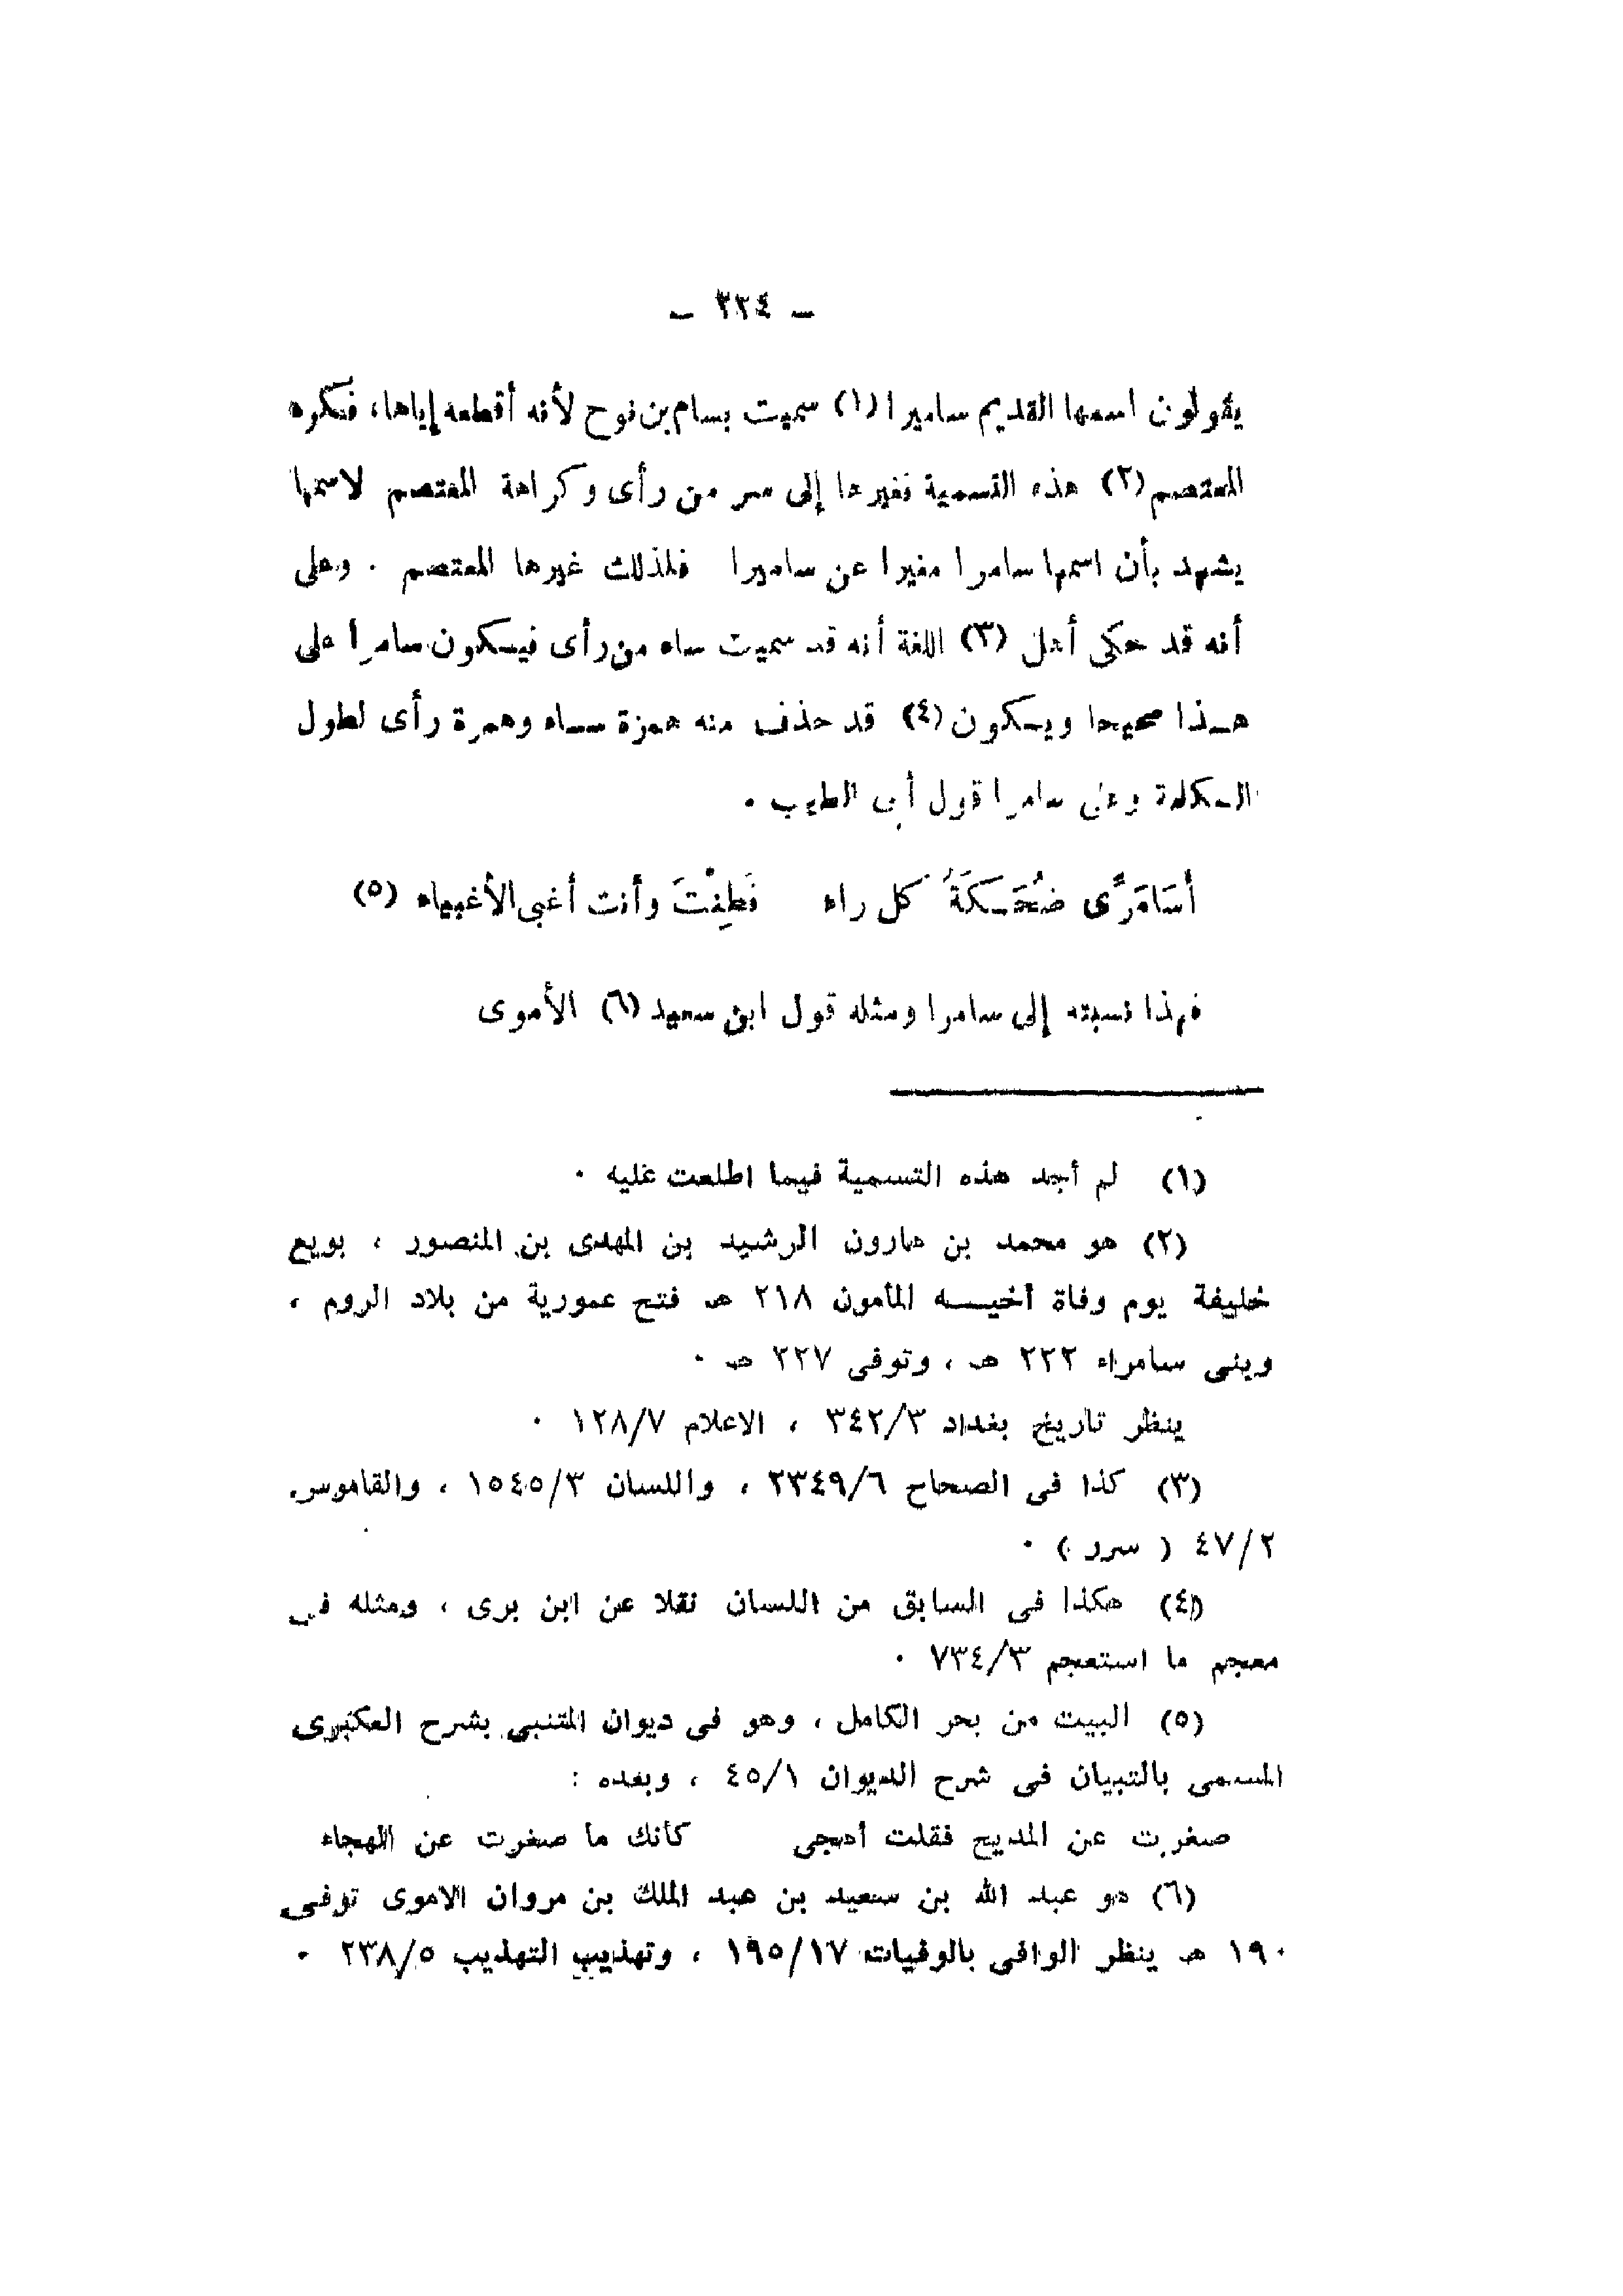 ـ ٣٢٤ ـ
يقولون اسمها القديم ساميرا (١) سميت بسام بن نوح لأنه أقطعه إياها، فكره
المعتصم (٢) هذه التسمية فغيرها إلى سر من رأى وكراهة المعتصم لاسمها
يشهد بأن اسمها سامرا مغيرا عن ساميرا فلذلك غيرها المعتصم . وعلى
أنه قد حكى أهل (٣) اللغة أنه قد سميت ساء من رأى فيكون سامرا على
هذا صحيحا ويكون (٤) قد حذف منه همزة ساء وهمزة رأى لطول
الكلمة وعلى سامرا قول أبى الطيب .
أَسَامَرِّى ضُحَكَةُ كل راء فَطِنْتَ وأنت أغبى الأغبياء (٥)
فهذا نسبته إلى سامرا ومثله قول ابن سعيد (٦) الأموى
(١) لم أجد هذه التسمية فيما اطلعت عليه .
(٢) هو محمد بن هارون الرشيد بن المهدى بن المنصور ، بويع
خليفة يوم وفاة أخيه المأمون ٢١٨ هـ فتح عمورية من بلاد الروم ،
وبنى سامراء ٢٢٢ هـ ، وتوفى ٢٢٧ هـ .
ينظر تاريخ بغداد ٣٤٢/٣ ، الاعلام ١٢٨/٧ .
(٣) كذا فى الصحاح ٢٣٤٩/٦ ، واللسان ١٥٤٥/٣ ، والقاموس
٤٧/٢ ( سرر ) .
(٤) هكذا فى السابق من اللسان نقلا عن ابن برى ، ومثله فى
معجم ما استعجم ٧٣٤/٣ .
(٥) البيت من بحر الكامل ، وهو فى ديوان المتنبى بشرح العكبرى
المسمى بالتبيان فى شرح الديوان ٤٥/١ ، وبعده :
صغرت عن المديح فقلت أهجى كأنك ما صغرت عن الهجاء
(٦) هو عبد الله بن سعيد بن عبد الملك بن مروان الاموى توفى
١٩٠ هـ ينظر الوافى بالوفيات ١٩٥/١٧ ، وتهذيب التهذيب ٢٣٨/٥ .